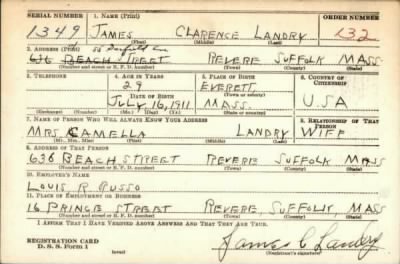 SERIAL NUMBER 1. NAME (Print) ORDER NUMBER
1349 JAMES CLARENCE LANDRY 132
(First) (Middle) (Last)
2. ADDRESS (Print) 58
636 BEACH STREET REVERE SUFFOLK MASS
(Number and street or R. F. D. number) (Town) (County) (State)
3. TELEPHONE 4. AGE IN YEARS 5. PLACE OF BIRTH 6. COUNTRY OF CITIZENSHIP
29 EVERETT
DATE OF BIRTH (Town or county)
JULY 16, 1911 MASS. U.S.A
(Exchange) (Number) (Mo.) (Day) (Yr.) (State or country)
7. NAME OF PERSON WHO WILL ALWAYS KNOW YOUR ADDRESS 8. RELATIONSHIP OF THAT PERSON
MRS. CAMELLA LANDRY WIFE
(Mr., Mrs., Miss) (First) (Middle) (Last)
9. ADDRESS OF THAT PERSON
636 BEACH STREET REVERE SUFFOLK MASS
(Number and street or R. F. D. number) (Town) (County) (State)
10. EMPLOYER'S NAME
LOUIS R. RUSSO
11. PLACE OF EMPLOYMENT OR BUSINESS
16 PRINCE STREET REVERE, SUFFOLK, MASS
(Number and street or R. F. D. number) (Town) (County) (State)
I AFFIRM THAT I HAVE VERIFIED ABOVE ANSWERS AND THAT THEY ARE TRUE.
REGISTRATION CARD
D. S. S. Form 1 (over) James C Landry
(Registrant's signature)